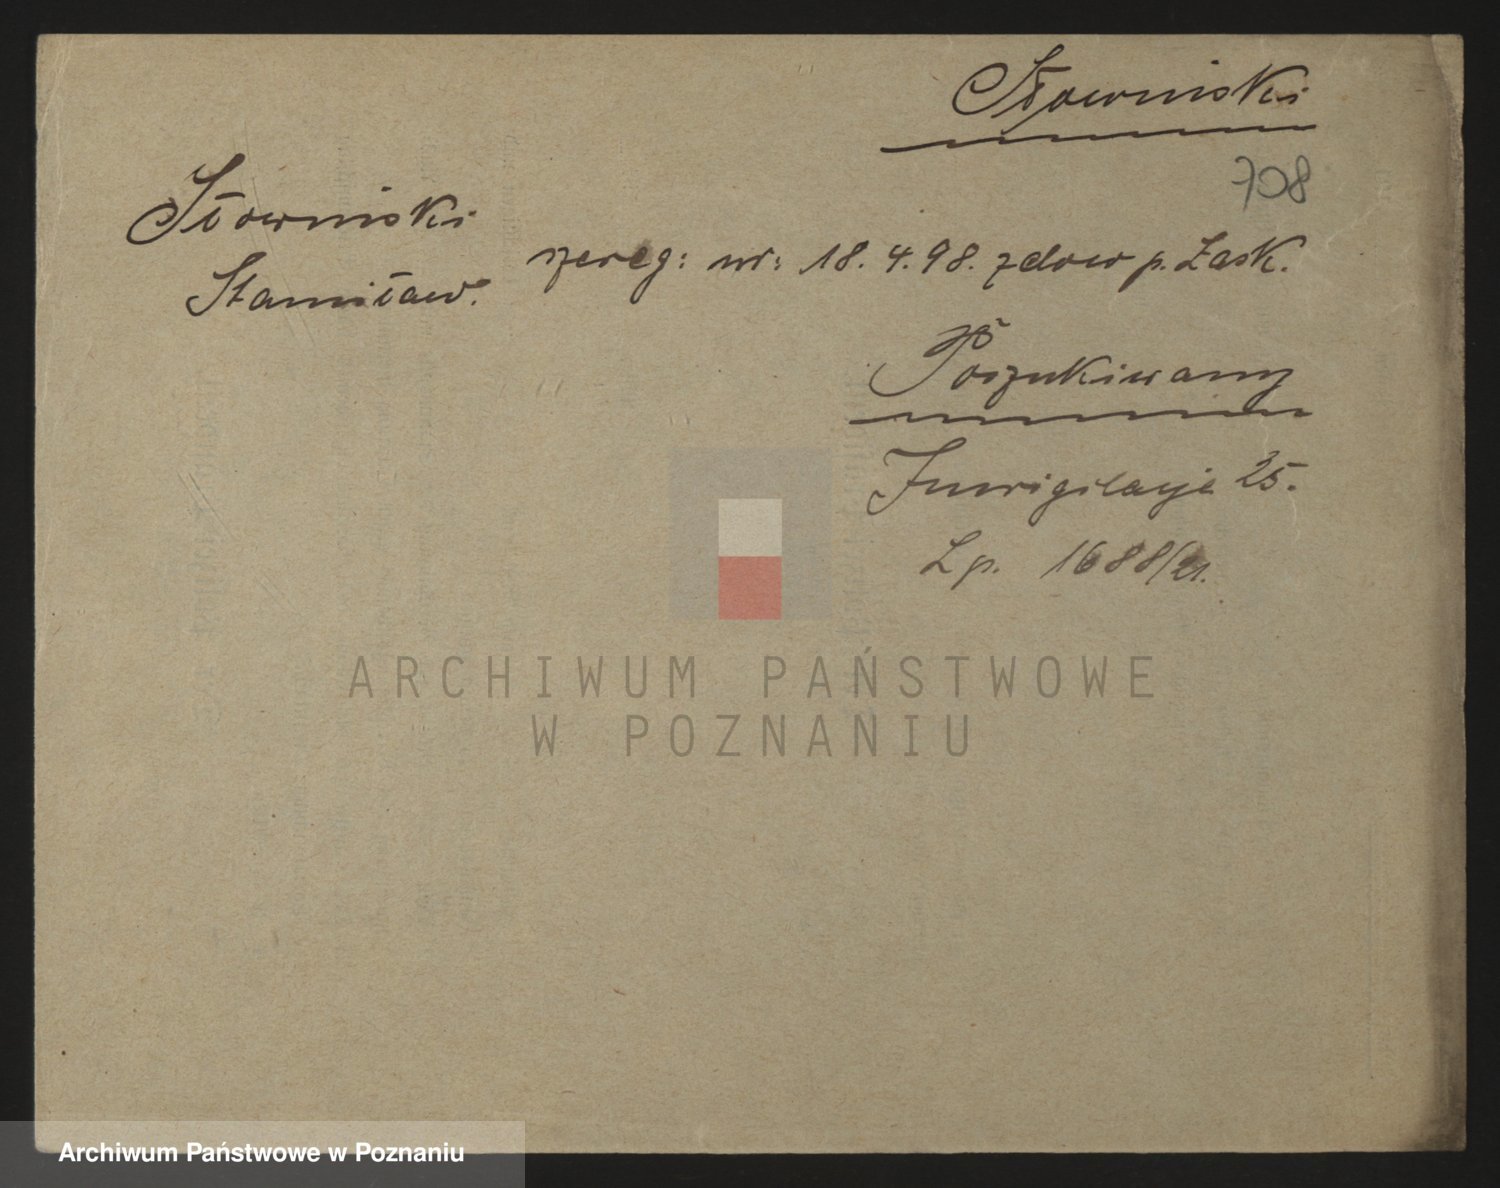 Słowniski
708
Słowniski
Stanisław.
szereg: ur: 18. 4. 98. Zdow p. Łask.
Poszukiwany
Inwigilacja 25.
Lp. 1688/21.
ARCHIWUM PAŃSTWOWE
W POZNANIU
Archiwum Państwowe w Poznaniu